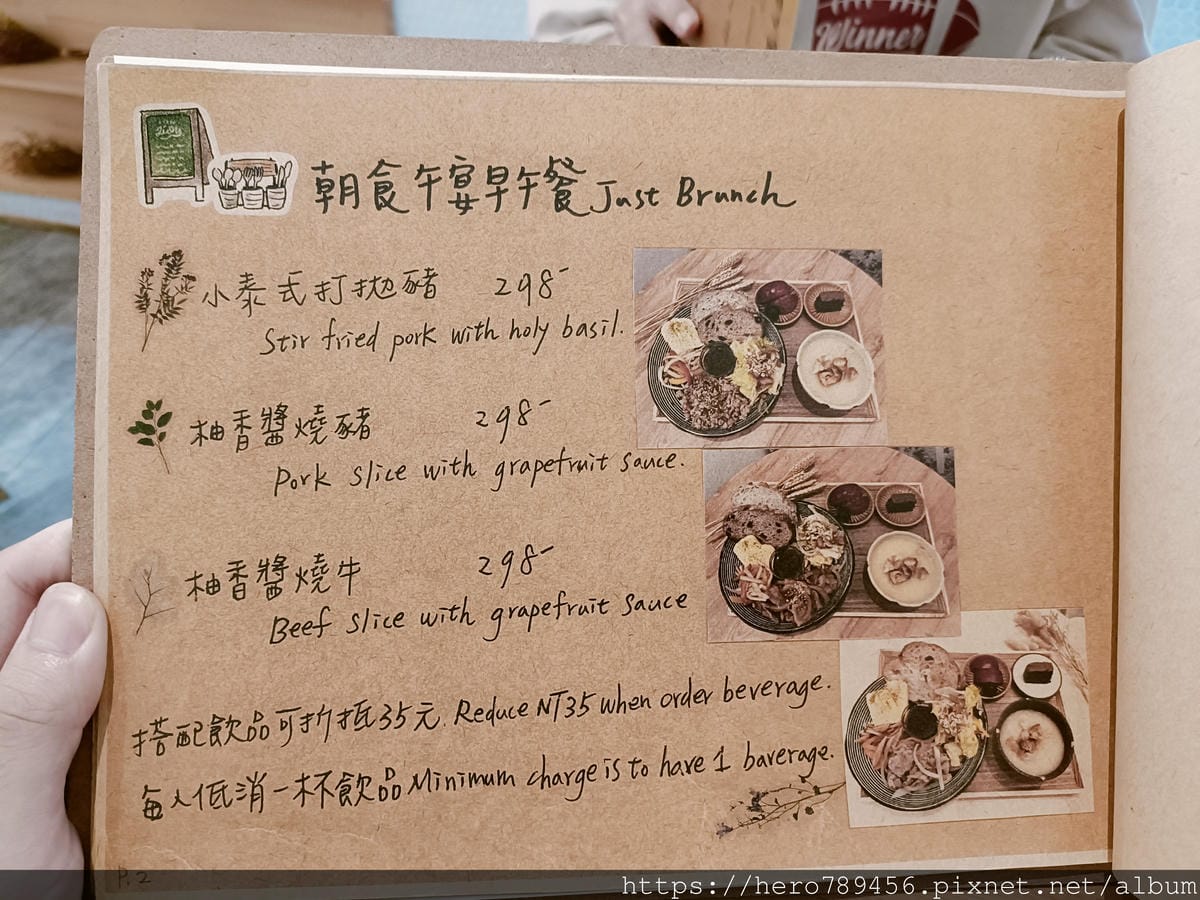 Winner
朝食午宴早午餐 Just Brunch
小泰式打拋豬 298-
Stir fried pork with holy basil.
柚香醬燒豬 298-
Pork slice with grapefruit sauce.
柚香醬燒牛 298-
Beef slice with grapefruit sauce
搭配飲品可折抵35元. Reduce NT35 when order beverage.
每人低消一杯飲品 Minimum charge is to have 1 baverage.
P.2
https://hero789456.pixnet.net/album